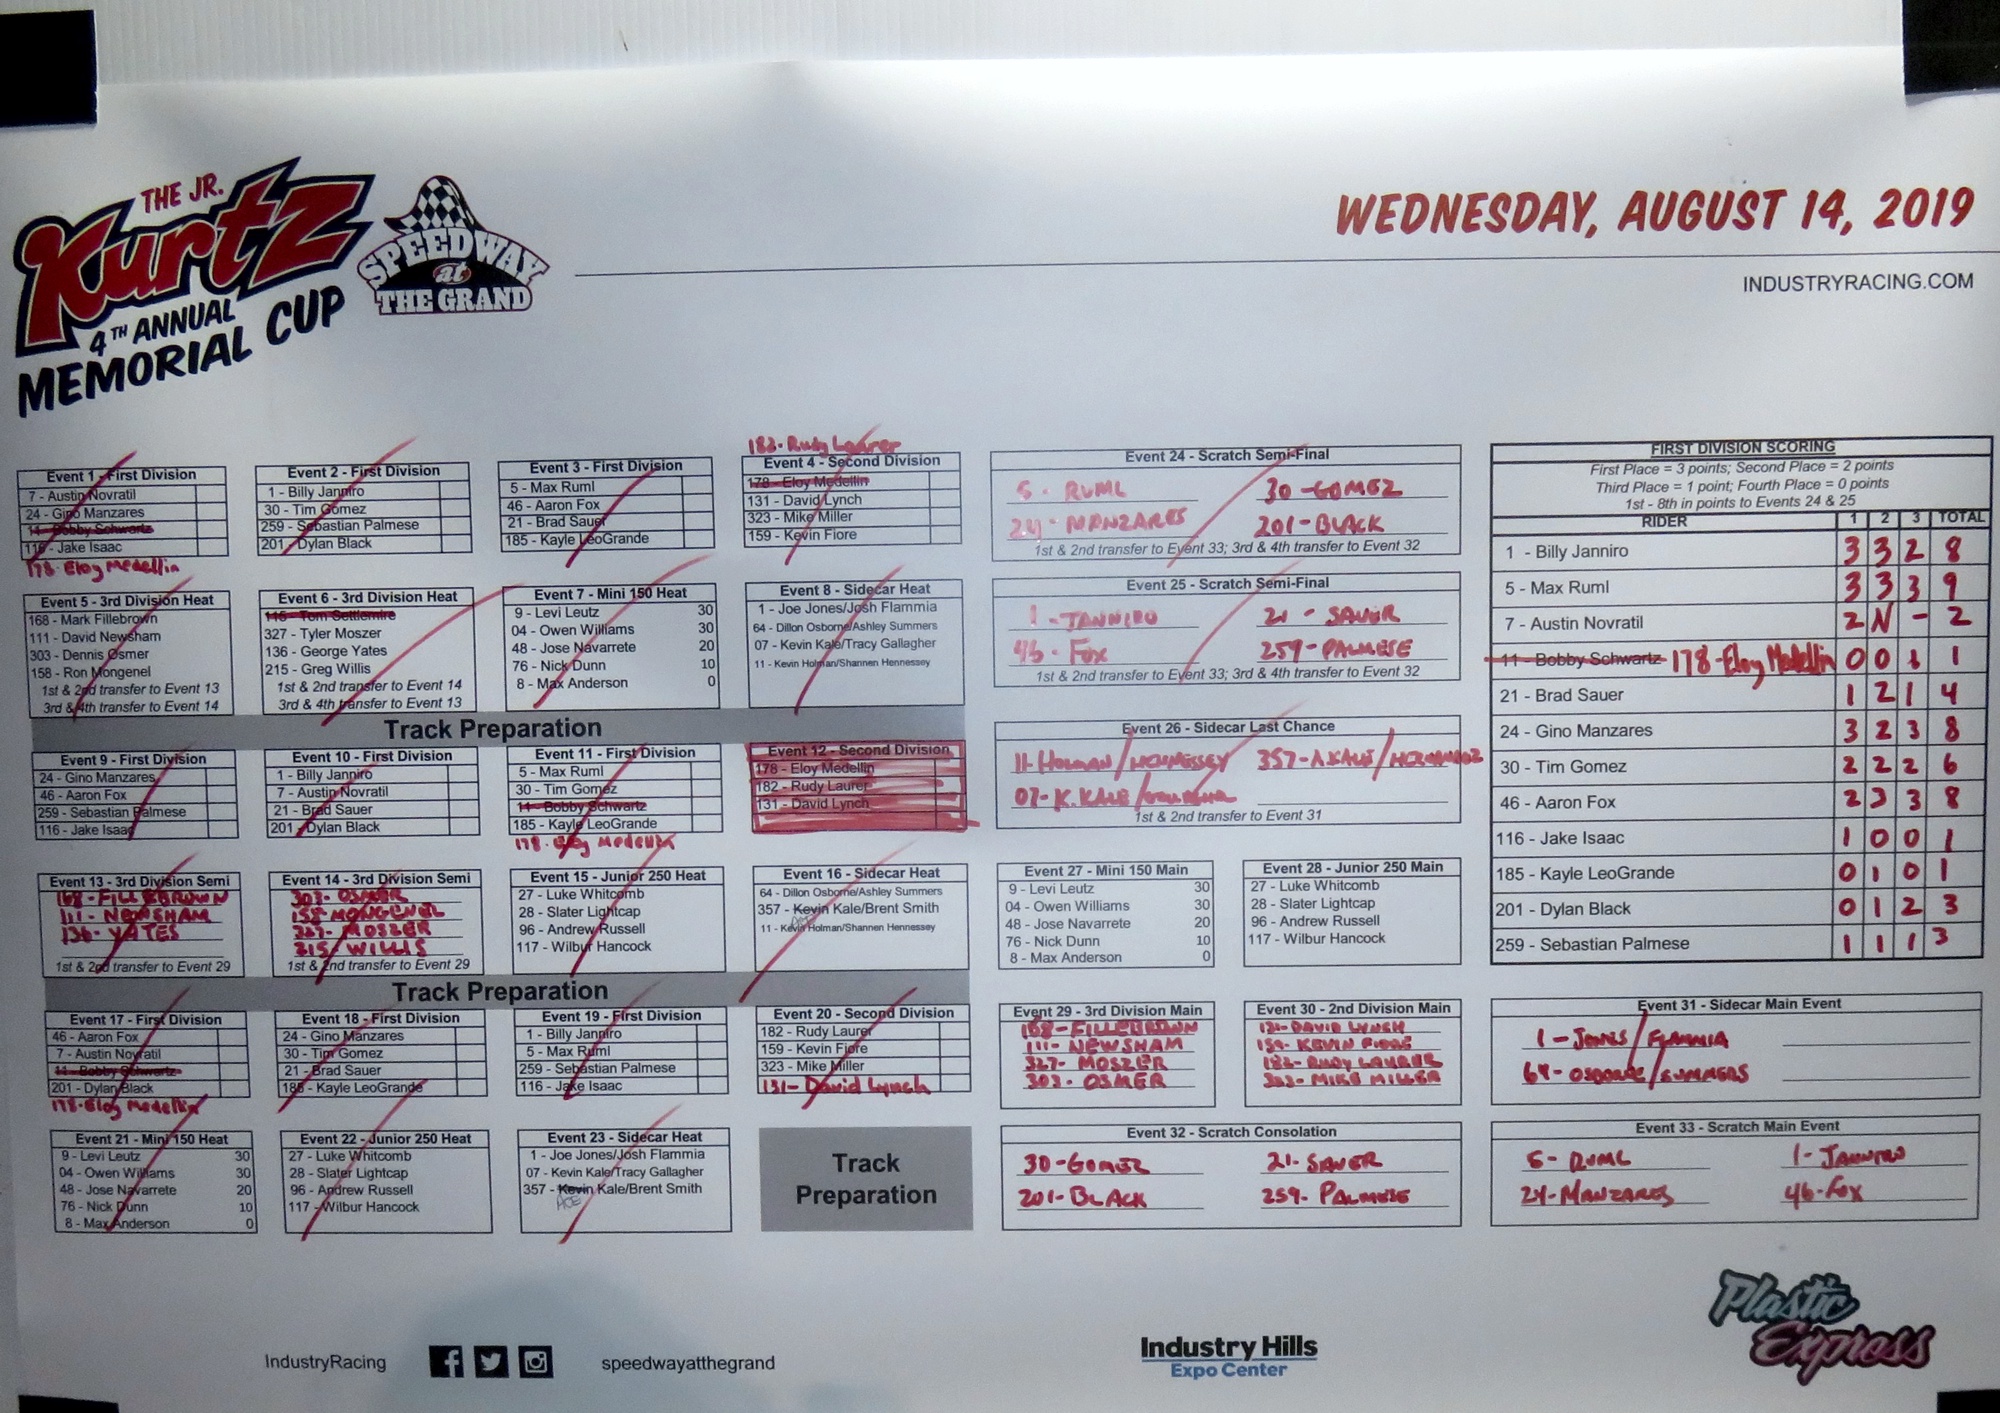 THE JR.
Kurtz
4TH ANNUAL
MEMORIAL CUP
SPEEDWAY
at
THE GRAND
WEDNESDAY, AUGUST 14, 2019
INDUSTRYRACING.COM
Event 1 - First Division
7 - Austin Novratil
24 - Gino Manzares
11 - Bobby Schwartz
116 - Jake Isaac
178-Eloy Medellin
Event 2 - First Division
1 - Billy Janniro
30 - Tim Gomez
259 - Sebastian Palmese
201 - Dylan Black
Event 3 - First Division
5 - Max Ruml
46 - Aaron Fox
21 - Brad Sauer
185 - Kayle LeoGrande
182-Rudy Laurer
Event 4 - Second Division
178 - Eloy Medellin
131 - David Lynch
323 - Mike Miller
159 - Kevin Fiore
Event 5 - 3rd Division Heat
168 - Mark Fillebrown
111 - David Newsham
303 - Dennis Osmer
158 - Ron Mongenel
1st & 2nd transfer to Event 13
3rd & 4th transfer to Event 14
Event 6 - 3rd Division Heat
115 - Tom Settlemire
327 - Tyler Moszer
136 - George Yates
215 - Greg Willis
1st & 2nd transfer to Event 14
3rd & 4th transfer to Event 13
Event 7 - Mini 150 Heat
9 - Levi Leutz 30
04 - Owen Williams 30
48 - Jose Navarrete 20
76 - Nick Dunn 10
8 - Max Anderson 0
Event 8 - Sidecar Heat
1 - Joe Jones/Josh Flammia
64 - Dillon Osborne/Ashley Summers
07 - Kevin Kale/Tracy Gallagher
11 - Kevin Holman/Shannen Hennessey
Track Preparation
Event 9 - First Division
24 - Gino Manzares
46 - Aaron Fox
259 - Sebastian Palmese
116 - Jake Isaac
Event 10 - First Division
1 - Billy Janniro
7 - Austin Novratil
21 - Brad Sauer
201 - Dylan Black
Event 11 - First Division
5 - Max Ruml
30 - Tim Gomez
11 - Bobby Schwartz
185 - Kayle LeoGrande
178-Eloy Medellin
Event 12 - Second Division
178 - Eloy Medellin
182 - Rudy Laurer
131 - David Lynch
Event 13 - 3rd Division Semi
168-FILLEBROWN
111-NEWSHAM
136-YATES
1st & 2nd transfer to Event 29
Event 14 - 3rd Division Semi
303-OSMER
158-MONGENEL
327-MOSZER
215-WILLIS
1st & 2nd transfer to Event 29
Event 15 - Junior 250 Heat
27 - Luke Whitcomb
28 - Slater Lightcap
96 - Andrew Russell
117 - Wilbur Hancock
Event 16 - Sidecar Heat
64 - Dillon Osborne/Ashley Summers
357 - Kevin Kale/Brent Smith
11 - Kevin Holman/Shannen Hennessey
Track Preparation
Event 17 - First Division
46 - Aaron Fox
7 - Austin Novratil
11 - Bobby Schwartz
201 - Dylan Black
178-Eloy Medellin
Event 18 - First Division
24 - Gino Manzares
30 - Tim Gomez
21 - Brad Sauer
185 - Kayle LeoGrande
Event 19 - First Division
1 - Billy Janniro
5 - Max Ruml
259 - Sebastian Palmese
116 - Jake Isaac
Event 20 - Second Division
182 - Rudy Laurer
159 - Kevin Fiore
323 - Mike Miller
131-David Lynch
Event 21 - Mini 150 Heat
9 - Levi Leutz 30
04 - Owen Williams 30
48 - Jose Navarrete 20
76 - Nick Dunn 10
8 - Max Anderson 0
Event 22 - Junior 250 Heat
27 - Luke Whitcomb
28 - Slater Lightcap
96 - Andrew Russell
117 - Wilbur Hancock
Event 23 - Sidecar Heat
1 - Joe Jones/Josh Flammia
07 - Kevin Kale/Tracy Gallagher
357 - Kevin Kale/Brent Smith
ACE
Track
Preparation
Event 24 - Scratch Semi-Final
5 - RUML 30-GOMEZ
24-MANZARES 201-BLACK
1st & 2nd transfer to Event 33; 3rd & 4th transfer to Event 32
Event 25 - Scratch Semi-Final
1-JANNIRO 21-SAUER
46-FOX 259-PALMESE
1st & 2nd transfer to Event 33; 3rd & 4th transfer to Event 32
Event 26 - Sidecar Last Chance
11-HOLMAN/HENNESSEY 357-A.KALE/
07-K.KALE/
1st & 2nd transfer to Event 31
Event 27 - Mini 150 Main
9 - Levi Leutz 30
04 - Owen Williams 30
48 - Jose Navarrete 20
76 - Nick Dunn 10
8 - Max Anderson 0
Event 28 - Junior 250 Main
27 - Luke Whitcomb
28 - Slater Lightcap
96 - Andrew Russell
117 - Wilbur Hancock
Event 29 - 3rd Division Main
168-FILLEBROWN
111-NEWSHAM
327-MOSZER
303-OSMER
Event 30 - 2nd Division Main
131-DAVID LYNCH
159-KEVIN FIORE
182-RUDY LAURER
323-MIKE MILLER
Event 31 - Sidecar Main Event
1-JONES/FLAMMIA
64-OSBORNE/SUMMERS
Event 32 - Scratch Consolation
30-GOMEZ 21-SAUER
201-BLACK 259-PALMESE
Event 33 - Scratch Main Event
5-RUML 1-JANNIRO
24-MANZARES 46-FOX
FIRST DIVISION SCORING
First Place = 3 points; Second Place = 2 points
Third Place = 1 point; Fourth Place = 0 points
1st - 8th in points to Events 24 & 25
RIDER 1 2 3 TOTAL
1 - Billy Janniro 3 3 2 8
5 - Max Ruml 3 3 3 9
7 - Austin Novratil 2 N - 2
11 - Bobby Schwartz 178-Eloy Medellin 0 0 1 1
21 - Brad Sauer 1 2 1 4
24 - Gino Manzares 3 2 3 8
30 - Tim Gomez 2 2 2 6
46 - Aaron Fox 2 3 3 8
116 - Jake Isaac 1 0 0 1
185 - Kayle LeoGrande 0 1 0 1
201 - Dylan Black 0 1 2 3
259 - Sebastian Palmese 1 1 1 3
IndustryRacing
speedwayatthegrand
Industry Hills
Expo Center
Plastic
Express